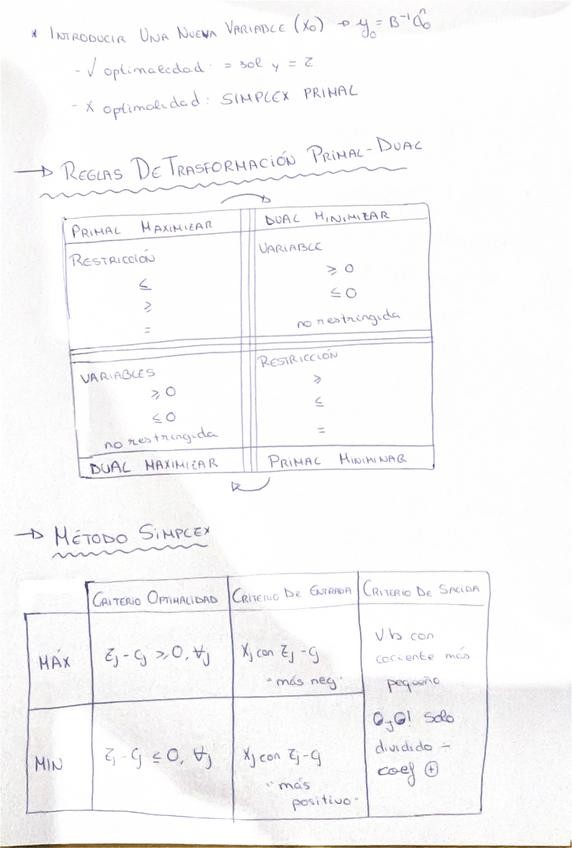 * INTRODUCIR UNA NUEVA VARIABLE (X₀) → y₀ = B⁻¹a₀
- √ optimalidad: = sol y = z
- X optimalidad: SIMPLEX PRIMAL
→ REGLAS DE TRASFORMACIÓN PRIMAL-DUAL
PRIMAL MAXIMIZAR DUAL MINIMIZAR
RESTRICCIÓN VARIABLE
≤ ≥ 0
≥ ≤ 0
= no restringida
VARIABLES RESTRICCIÓN
≥ 0 ≥
≤ 0 ≤
no restringida =
DUAL MAXIMIZAR PRIMAL MINIMINAR
→ MÉTODO SIMPLEX
CRITERIO OPTIMALIDAD CRITERIO DE ENTRADA CRITERIO DE SALIDA
MÁX
zj - cj ≥ 0, ∀j
xj con zj - cj
"más neg"
V.b con
cociente más
pequeño
MIN
zj - cj ≤ 0, ∀j
xj con zj - cj
"más
positivo"
Solo
dividido ÷
coef ⊕